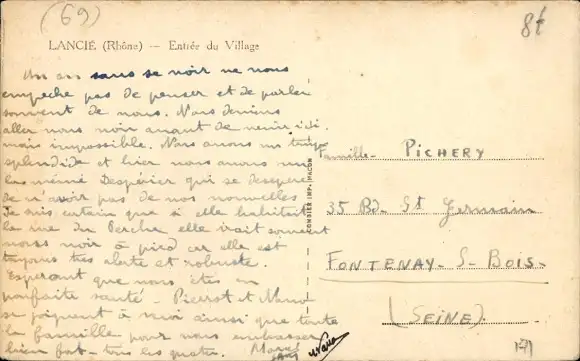 (69)
8f
LANCIÉ (Rhône) — Entrée du Village
Un an sans se voir ne nous
empêche pas de penser et de parler
souvent de nous. Nous devions
aller nous voir avant de venir ici
mais impossible. Nous avons un temps
splendide et hier nous avons vu
la mémé Despérier qui se desespère
de n'avoir pas de nos nouvelles
Je suis certain que si elle habitait
la rue du Perche elle irait souvent
nous voir à pied car elle est
toujours très alerte et robuste.
Esperant que nous êtes en
parfaite santé - Pierrot et Nano
se joignent à moi ainsi que toute
la famille pour nous embrasser
bien fort - tous les quatre.
COMBIER IMP. MACON
Famille - PICHERY
35 Bd. St Germain
FONTENAY - S - BOIS -
(SEINE)